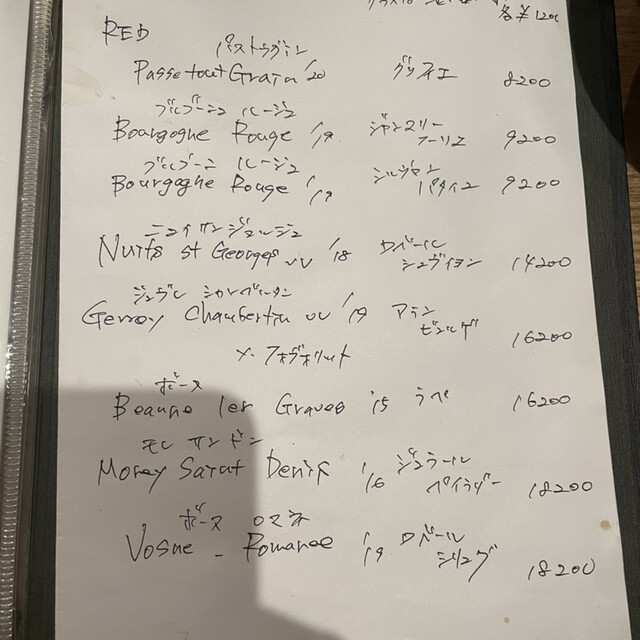 各¥1200
RED
パストゥグラン
PassetoutGrain '20 グリフィエ 8200
ブルゴーニュ ルージュ
Bourgogne Rouge '19 ジャンヌリー 9200
ブルゴーニュ ルージュ
Bourgogne Rouge '19 シルヴァン パタイユ 9200
ニュイ サン ジョルジュ
Nuits St Georges VV '18 ロベール シュヴィヨン 14200
ジュヴレ シャンベルタン
Gevrey Chambertin VV '19 アラン ビュルゲ 16200
メ・ファヴォリット
ボーヌ
Beaune 1er Graves '15 ラペ 16200
モレ サン ドニ
Morey Saint Denis '16 ジェラール ペイラゾー 18200
ボーヌ ロマネ
Vosne - Romanee '19 ロベール シリュグ 18200